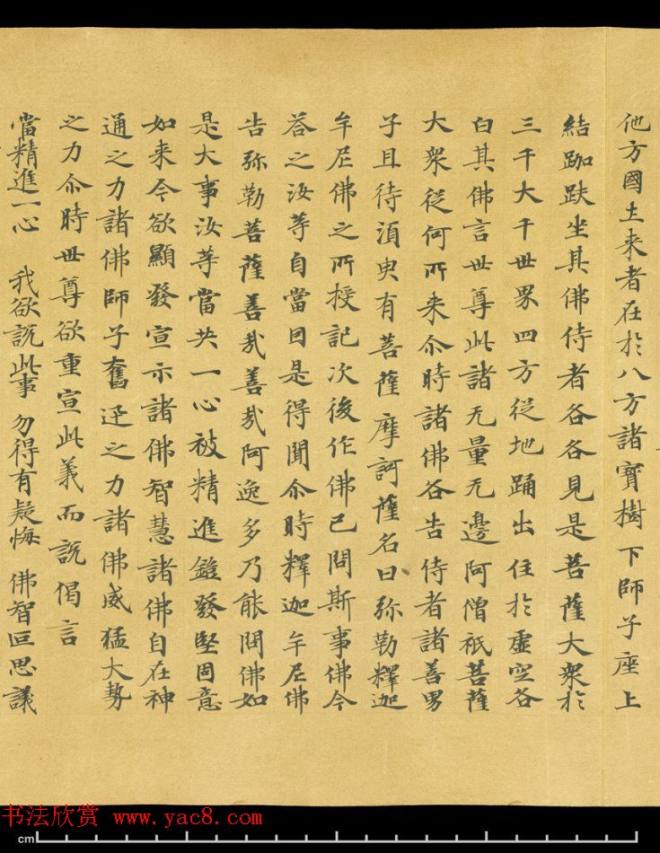 他方國土来者在於八方諸寳樹下師子座上
結跏趺坐其佛侍者各各見是菩薩大衆於
三千大千世界四方従地踊出住於虚空各
白其佛言世尊此諸无量无邊阿僧祇菩薩
大衆従何所来尒時諸佛各告侍者諸善男
子且待湏臾有菩薩摩訶薩名曰弥勒釋迦
牟尼佛之所授記次後作佛已問斯事佛今
荅之汝等自當因是得聞尒時釋迦牟尼佛
告弥勒菩薩善哉善哉阿逸多乃能問佛如
是大事汝等當共一心被精進鎧發堅固意
如来今欲顯發宣示諸佛智慧諸佛自在神
通之力諸佛師子奮迅之力諸佛威猛大勢
之力尒時世尊欲重宣此義而說偈言
當精進一心 我欲說此事 勿得有疑悔 佛智叵思議
书法欣赏 www.yac8.com
cm